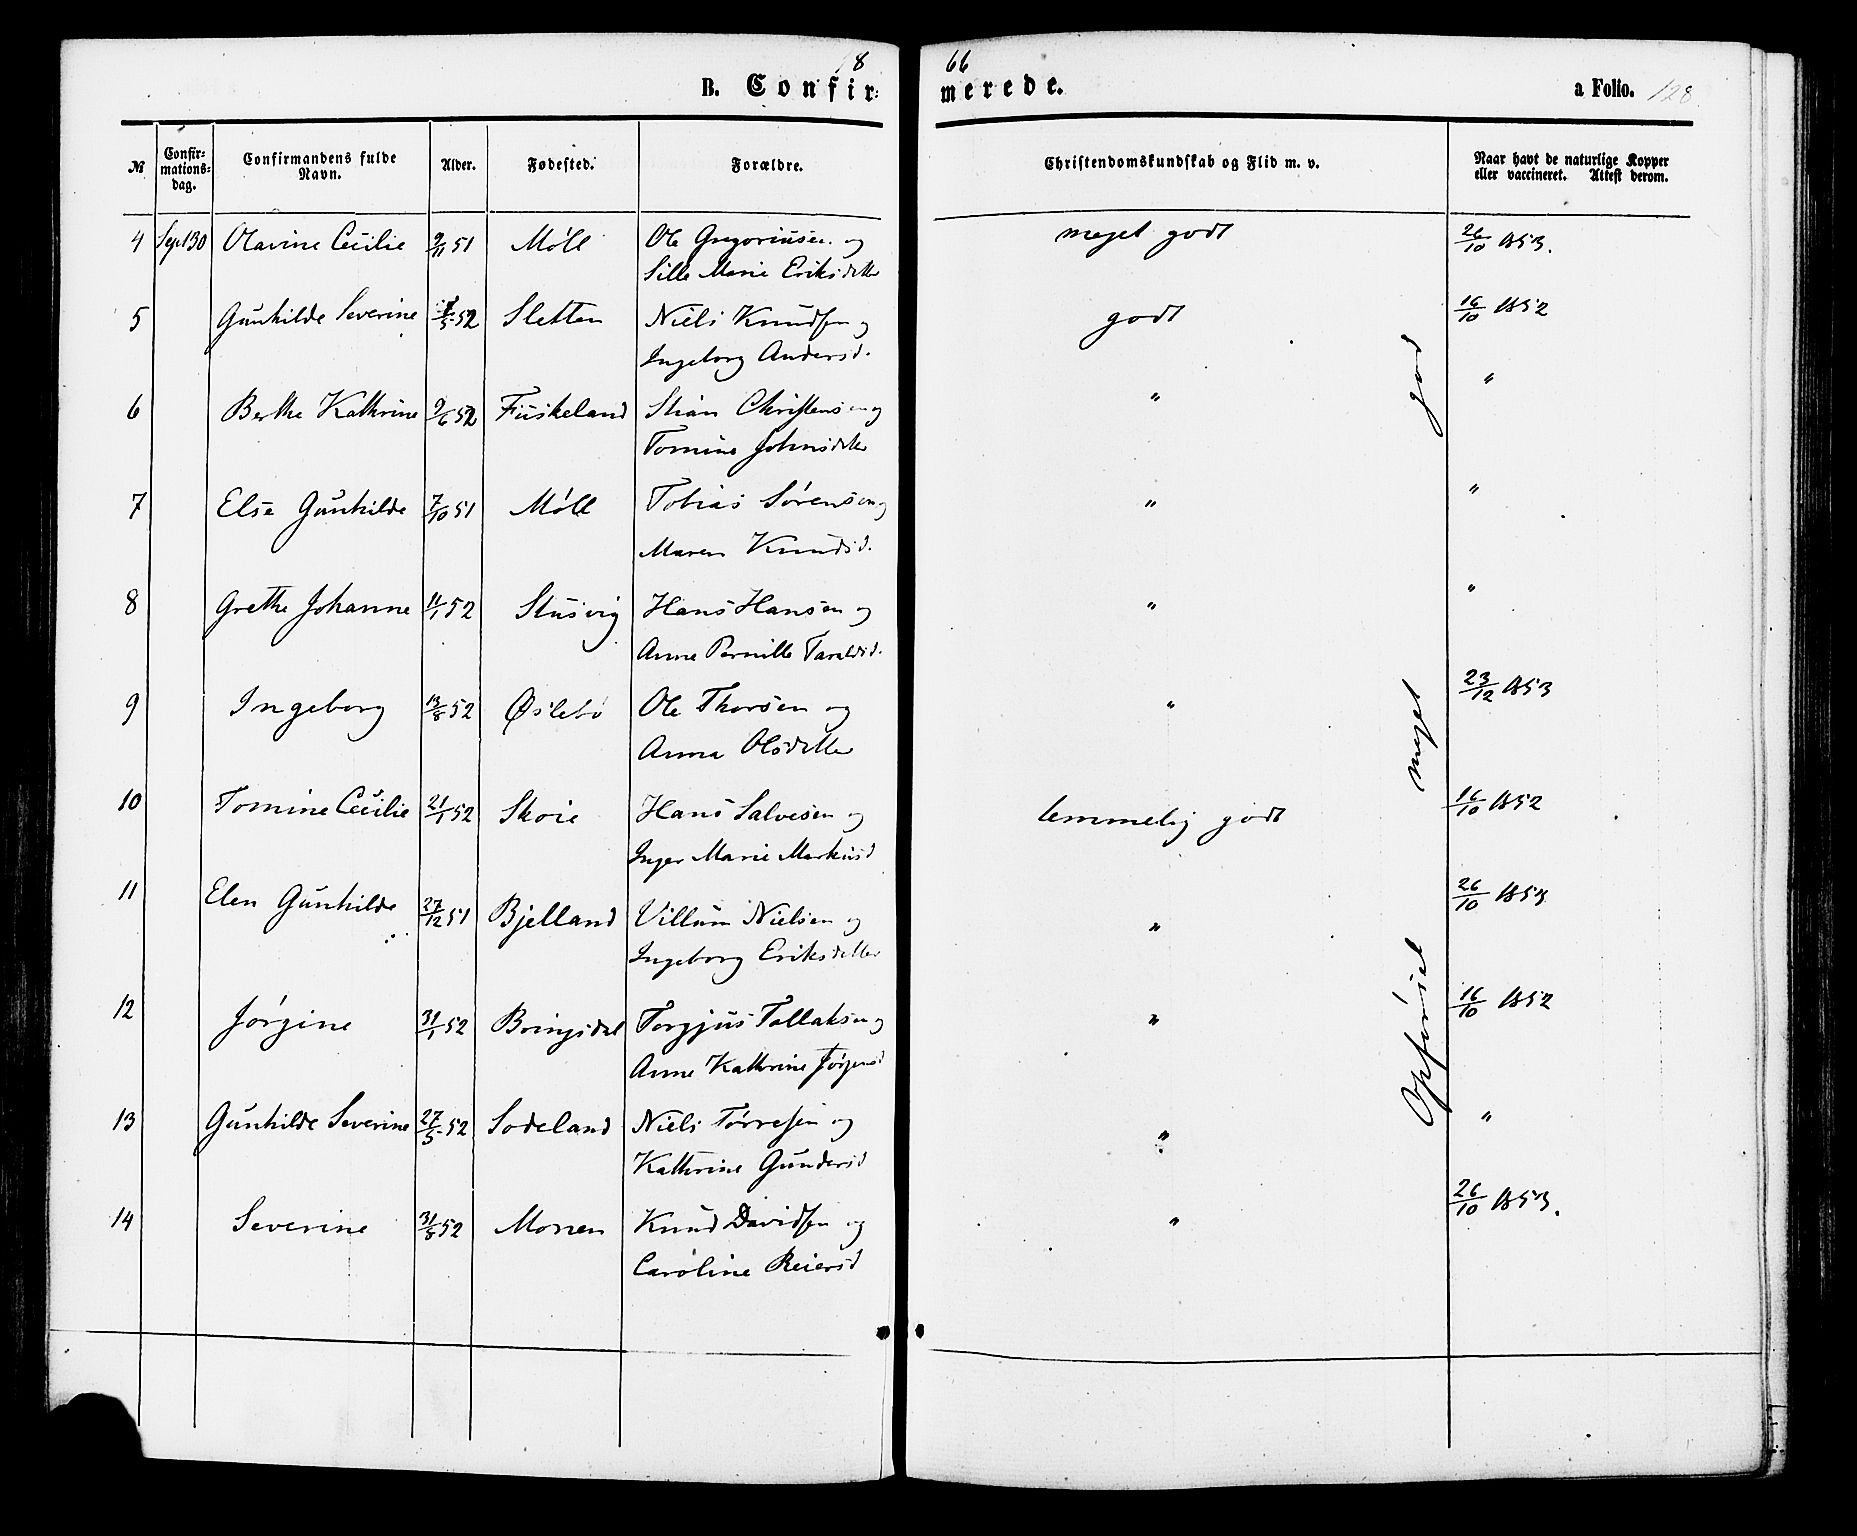 18 66
B. Confir= merede. a Folio. 128.
№ Confir=mations=dag. Confirmandens fulde Navn. Alder. Fødested. Forældre. Christendomskundskab og Flid m. v. Naar havt de naturlige Kopper eller vaccineret. Attest derom.
4 Sept 30 Olavine Cecilie 9/11 51 Möll Ole Gregoriusen og meget godt 26/10 1853.
Sille Marie Eriksdatter
5 Gunhilde Severine 52 Sletten Niels Knudsen og godt 16/10 1852
Ingeborg Andersd.
6 Berthe Kathrine 9/6 52 Fuskeland Stian Christensen og " "
Tomine Johnsdatter
7 Else Gunhilde 7/10 51 Möll Tobias Sørensen og " "
Maren Knudsd.
8 Grethe Johanne 11/1 52 Stusvig Hans Hansen og " "
Anne Pernille Taraldsd.
9 Ingeborg 13/8 52 Øslebö Ole Thorsen og " 23/12 1853
Anna Olsdatter
10 Tomine Cecilie 21/1 52 Skoie Hans Salvesen og temmelig godt 16/10 1852
Inger Marie Markusd
11 Elen Gunhilde 27/12 51 Bjelland Villum Nielsen og " 26/10 1853
Ingeborg Eriksdatter
12 Jörgine 31/1 52 Bringsdal Torgjus Tallaksen og " 16/10 1852
Anne Kathrine Jörgensd
13 Gunhilde Severine 27/5 52 Sodeland Niels Törresen og " "
Kathrine Gundersd
14 Severine 31/8 52 Monen Knud Davidsen og " 26/10 1853.
Caroline Reiersd
Opførsel meget god